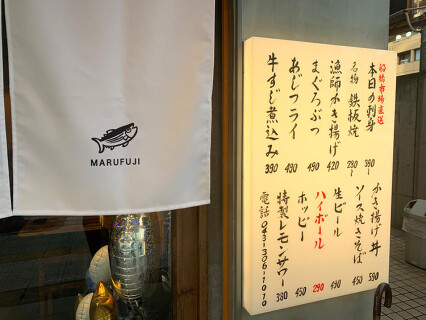 MARUFUJI
船橋市場直送
本日の刺身 390〜
名物 鉄板焼 290〜
漁師かき揚げ 420
まぐろぶつ 490
あじフライ 490
牛すじ煮込み 390
かき揚げ丼 590
ソース焼きそば 450
生ビール 490
ハイボール 290
ホッピー 450
特製レモンサワー 380
電話 043-306-1010